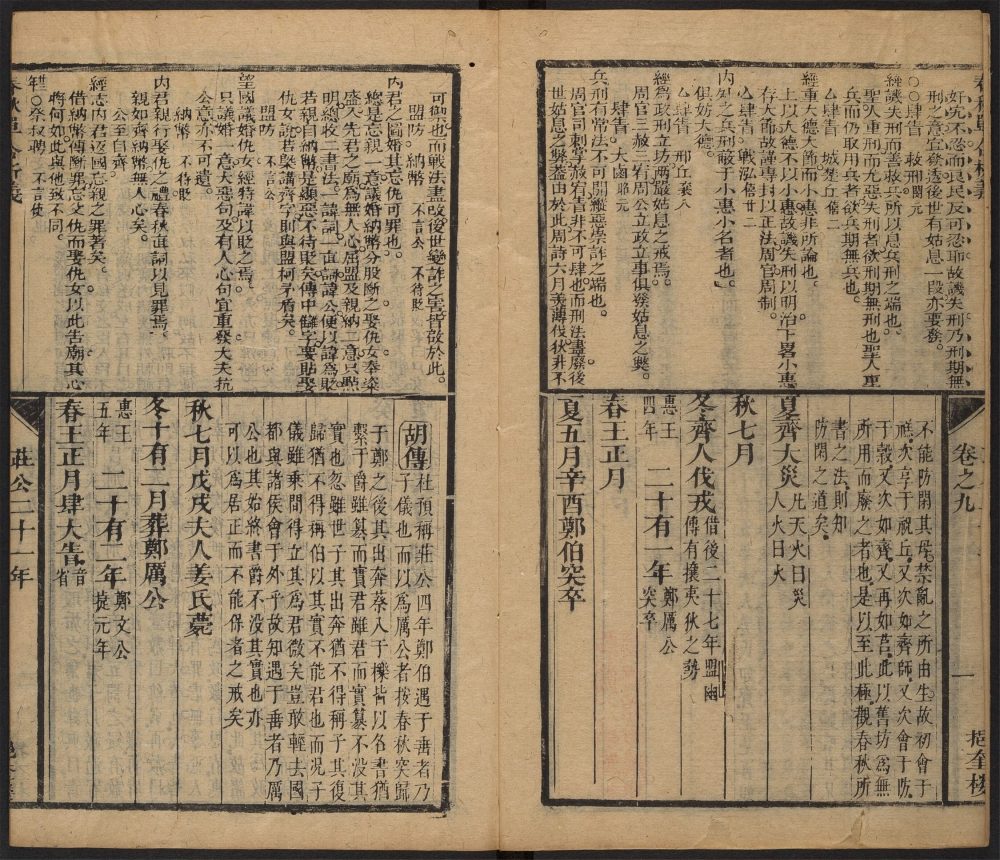 奸宄不忍而良民反可忍耶故譏失刑乃刑期無
刑之意宜發透後世有姑息一段亦要發。
○○肆眚 救邢閔元
經譏失刑而善救兵所以息兵刑之端也。
聖人重刑而尤惡失刑者欲刑期無刑也聖人重
兵而仍取用兵者欲兵期無兵也。
厶肆眚 城楚丘僖二
經重大德大節而小惠非所論也。
上以大德不以小惠故譏失刑以明治下畧小惠
存大節故謹專封以正法周官周制。
厶肆眚 戰泓僖廿二
內外之兵刑蔽于小惠小名者也。
俱妨大德。
厶肆眚 邢丘襄八
經為政刑立坊兩嚴姑息之戒焉。
周官三赦三宥周公立政立事俱發姑息之獘。
肆眚 大鹵昭元
兵刑有常法不可開縱惡崇詐之端也。
周官司刺掌赦宥眚非不可肆也而刑法盡廢後
世姑息之獘蓋由於此周詩六月薄伐
不能防閑其母禁亂之所由生故初會于
禚次享于祝丘又次如齊師又次會于防
于穀又次如齊又再如莒此以舊坊為無
所用而廢之者也是以至此極觀春秋所
書之法則知
防閑之道矣
夏齊大災 凡天火曰災
人火曰火
秋七月
冬齊人伐戎 借後二十七年盟幽
傳有攘夷狄之勢
惠王
四年 二十有一年 鄭厲公
突卒
春王正月
夏五月辛酉鄭伯突卒
卷之九
一
可衂也而戰法盡改後世變詐之害皆啟於此。
盟防 納幣 不言公 不待貶
內君之圖婚其忘仇可罪也。
總是忘親一意議婚納幣分股斷之娶仇女奉粢
盛入先君之廟為無人心屈盟及親納一意只點
明總收二書法一直詞一直諱諱公便以諱為貶
若親自納幣是顯惡不待貶矣傳中讎字要貼娶
仇女說若㸃講齊字則與盟柯矛盾矣。
盟防 不言公
望國議婚仇女經特諱以貶之焉。
只議婚一意大惡句及有人心句宜重發大夫抗
公意亦不可遺。
納幣 不待貶
內君親行娶仇之禮春秋直詞以見罪焉。
親如齊納幣無人心矣。
公至自齊
經志內君返國忘親之罪著矣。
借納幣傳斷罪忘父仇而娶仇女以此告廟其心
將何如此與他致不同。
○祭叔聘 不言使
胡傳 杜預稱莊公四年鄭伯遇于垂者乃
子儀也而以為厲公者按春秋突歸
于鄭之後其出奔蔡入于櫟皆以名書猶
繫于爵雖篡而實君雖君而實篡不沒其
實也忽雖世子其出奔猶不得稱子其復
歸猶不得稱伯以其實不能君也而況子
儀雖乘間得立其為君微矣豈敢輕去國
都與諸侯會于外乎故知遇于垂者乃厲
公也其始終書爵不沒其實也亦
可以為居正而不能保者之戒矣
秋七月戊戌夫人姜氏薨
冬十有二月葬鄭厲公
惠王
五年 二十有二年 鄭文公
捷元年
春王正月肆大眚 音
省
莊公二十一年